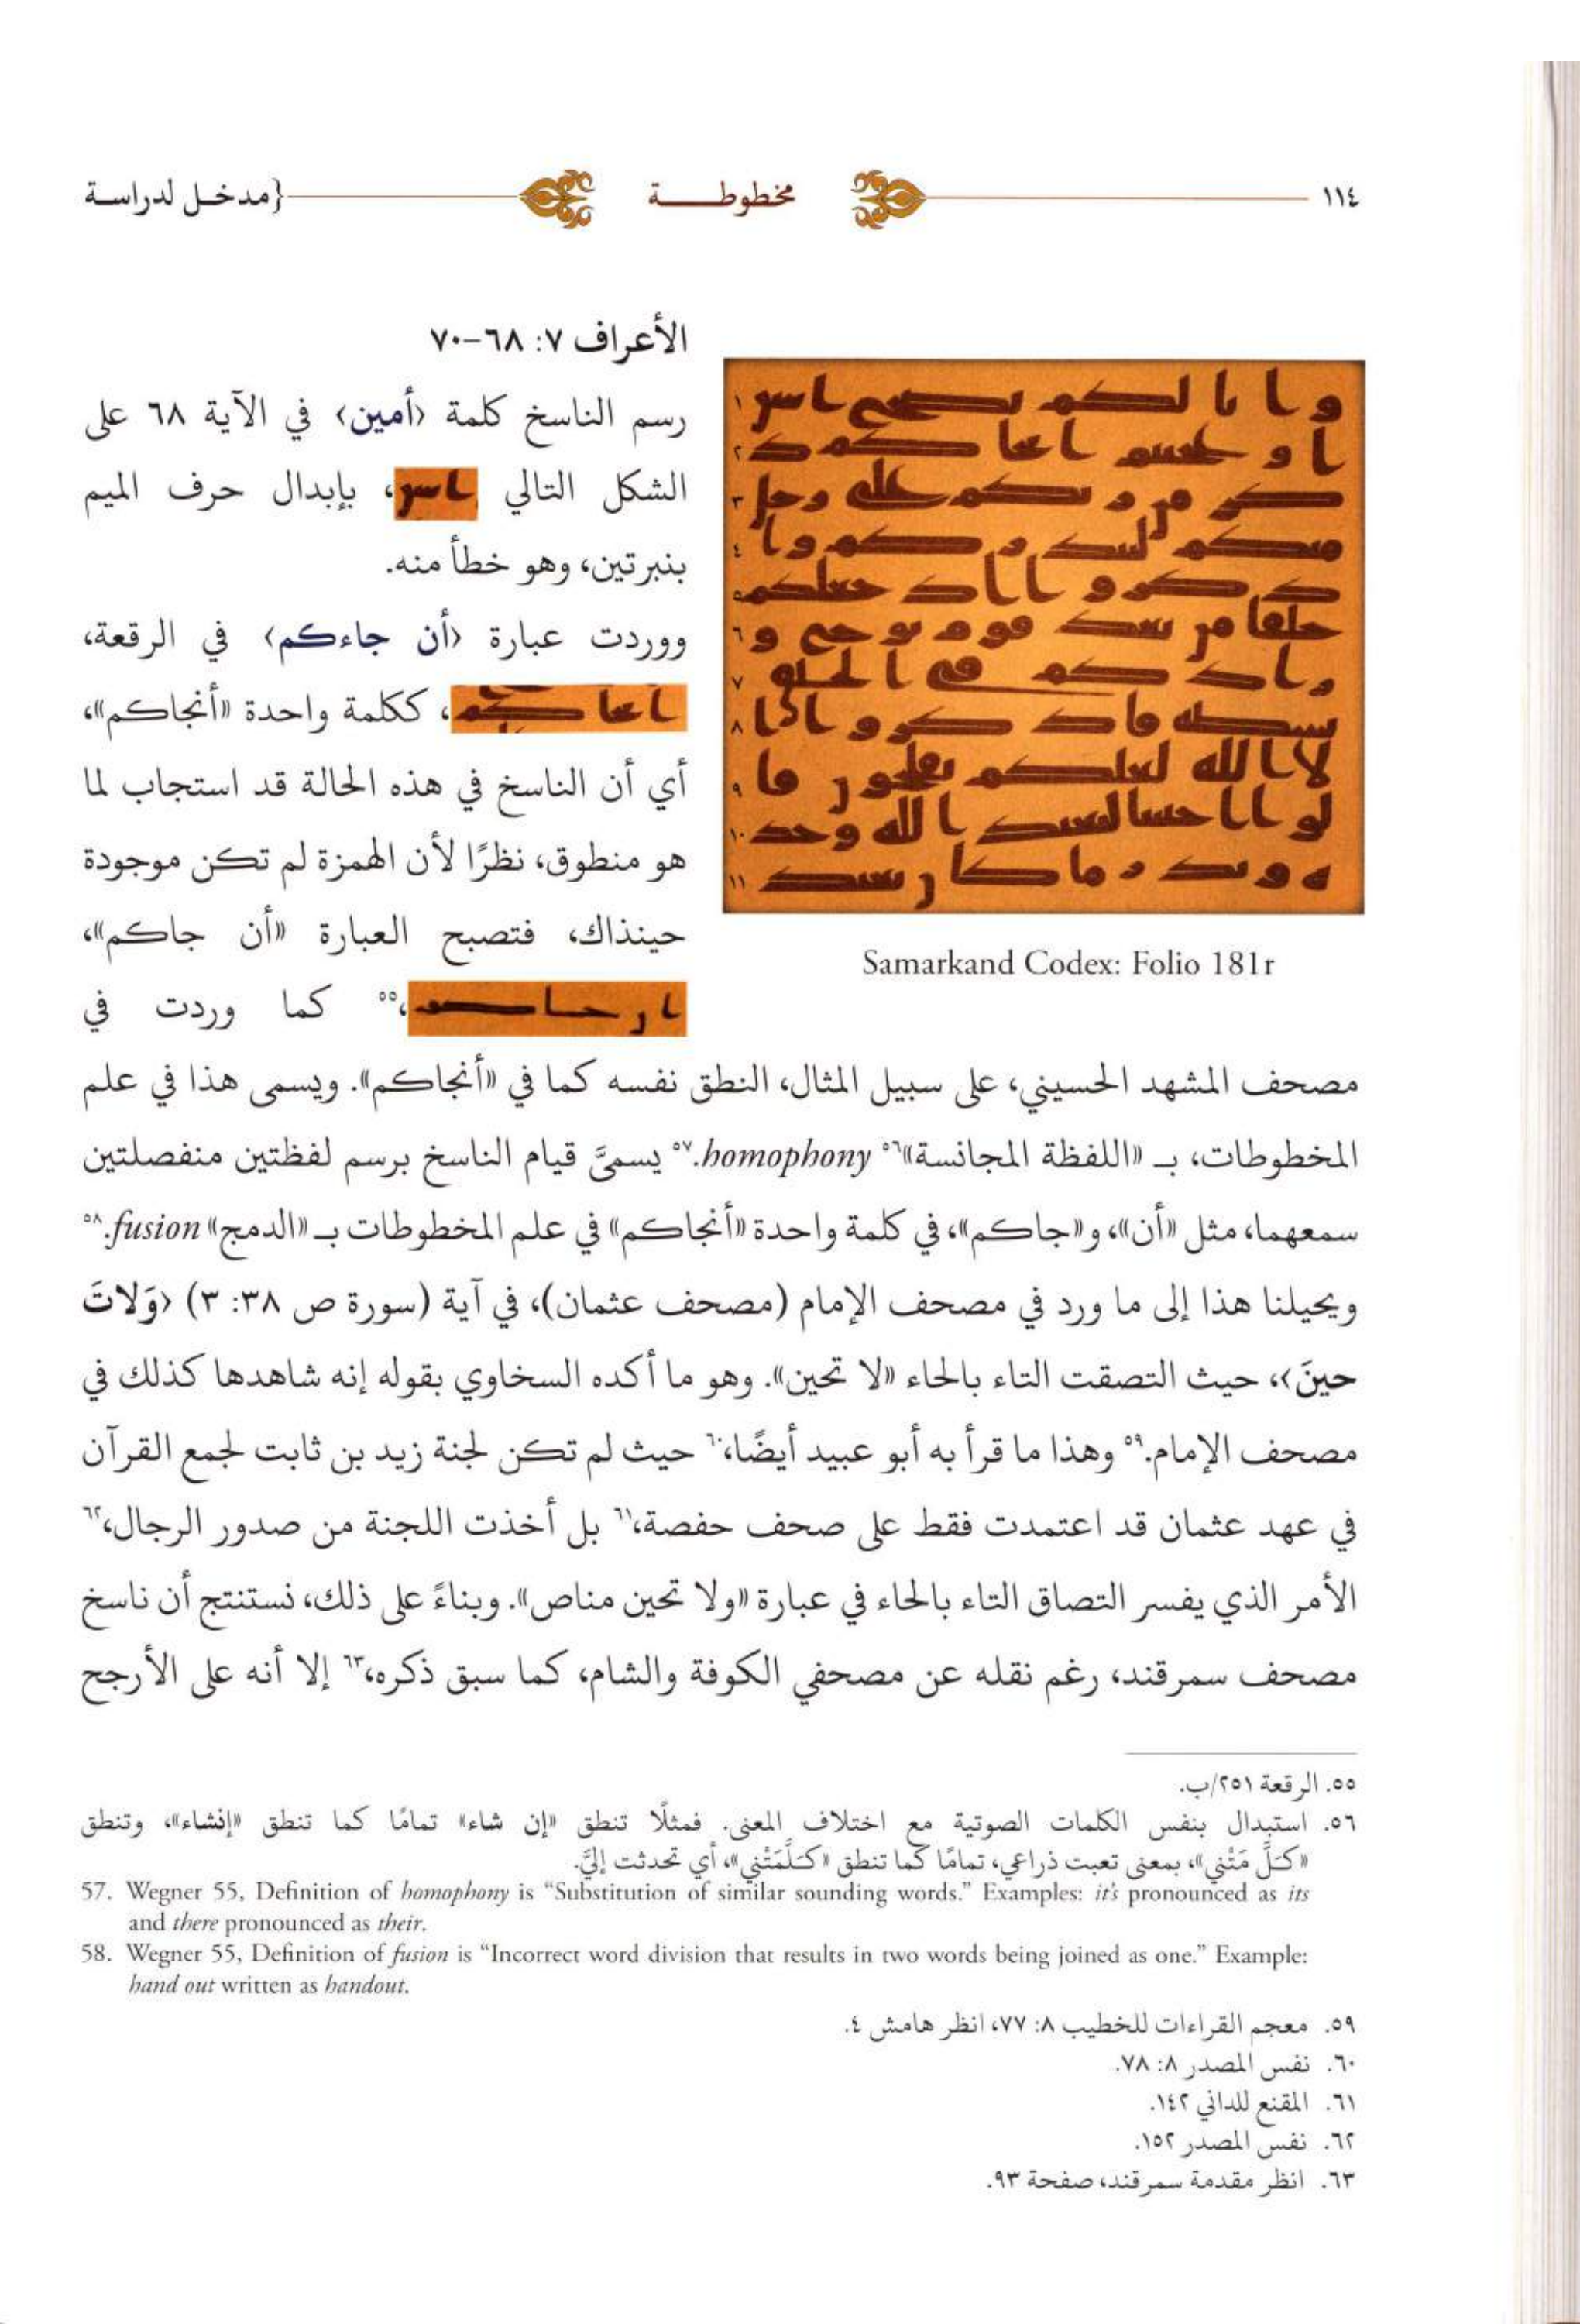 ١١٤
مخطوطة
{مدخل لدراسة
الأعراف ٧: ٦٨-٧٠
رسم الناسخ كلمة ﴿أمين﴾ في الآية ٦٨ على
الشكل التالي ، بإبدال حرف الميم
بنبرتين، وهو خطأ منه.
ووردت عبارة ﴿أن جاءكم﴾ في الرقعة،
، ككلمة واحدة «أنجاكم»،
أي أن الناسخ في هذه الحالة قد استجاب لما
هو منطوق، نظرًا لأن الهمزة لم تكن موجودة
حينذاك، فتصبح العبارة «أن جاكم»،
،٥٥ كما وردت في
Samarkand Codex: Folio 181r
مصحف المشهد الحسيني، على سبيل المثال، النطق نفسه كما في «أنجاكم». ويسمى هذا في علم
المخطوطات، بـ «اللفظة المجانسة»٥٦ homophony.٥٧ يسمىَّ قيام الناسخ برسم لفظتين منفصلتين
سمعهما، مثل «أن»، و«جاكم»، في كلمة واحدة «أنجاكم» في علم المخطوطات بـ «الدمج» fusion.٥٨
ويحيلنا هذا إلى ما ورد في مصحف الإمام (مصحف عثمان)، في آية (سورة ص ٣٨: ٣) ﴿وَلاتَ
حينَ﴾، حيث التصقت التاء بالحاء «لا تحين». وهو ما أكده السخاوي بقوله إنه شاهدها كذلك في
مصحف الإمام.٥٩ وهذا ما قرأ به أبو عبيد أيضًا،٦٠ حيث لم تكن لجنة زيد بن ثابت لجمع القرآن
في عهد عثمان قد اعتمدت فقط على صحف حفصة،٦١ بل أخذت اللجنة من صدور الرجال،٦٢
الأمر الذي يفسر التصاق التاء بالحاء في عبارة «ولا تحين مناص». وبناءً على ذلك، نستنتج أن ناسخ
مصحف سمرقند، رغم نقله عن مصحفي الكوفة والشام، كما سبق ذكره،٦٣ إلا أنه على الأرجح
٥٥. الرقعة ٢٥١/ب.
٥٦. استبدال بنفس الكلمات الصوتية مع اختلاف المعنى. فمثلًا تنطق «إن شاء» تمامًا كما تنطق «إنشاء»، وتنطق
«كَلَّ مَتْني»، بمعنى تعبت ذراعي، تمامًا كما تنطق «كَلَّمَتْني»، أي تحدثت إليَّ.
57. Wegner 55, Definition of homophony is “Substitution of similar sounding words.” Examples: it's pronounced as its
and there pronounced as their.
58. Wegner 55, Definition of fusion is “Incorrect word division that results in two words being joined as one.” Example:
hand out written as handout.
٥٩. معجم القراءات للخطيب ٨: ٧٧، انظر هامش ٤.
٦٠. نفس المصدر ٨: ٧٨.
٦١. المقنع للداني ١٤٢.
٦٢. نفس المصدر ١٥٢.
٦٣. انظر مقدمة سمرقند، صفحة ٩٣.